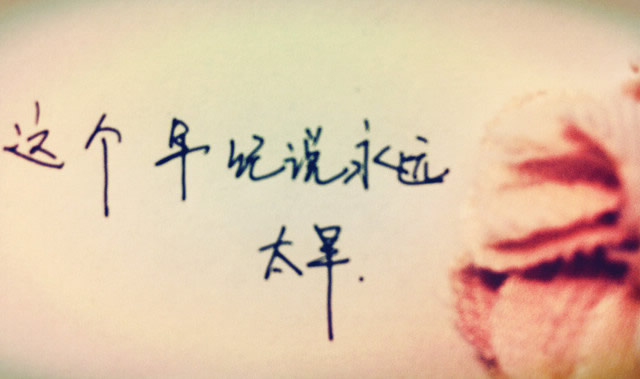 这个年纪说永远
太早.